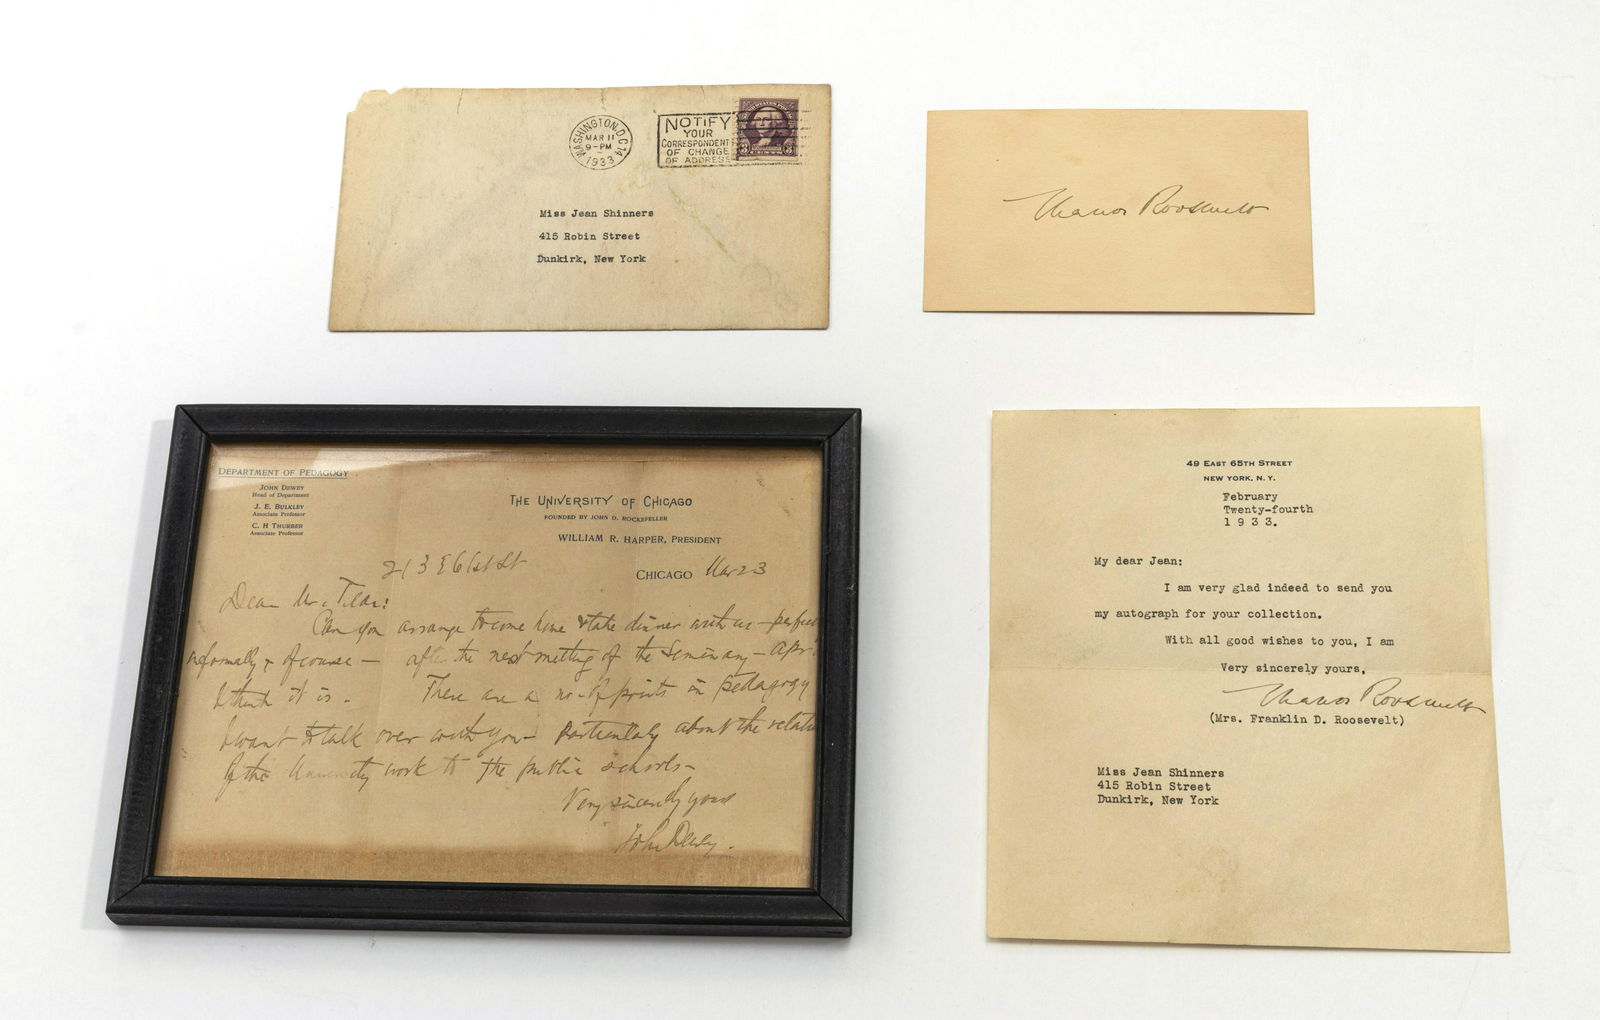 WASHINGTON, D.C. 14
MAR 11
9-PM
1933
NOTIFY
YOUR
CORRESPONDENTS
OF CHANGE
OF ADDRESS
3 3
Miss Jean Shinners
415 Robin Street
Dunkirk, New York
Eleanor Roosevelt
DEPARTMENT OF PEDAGOGY
JOHN DEWEY
Head of Department
J. E. BULKLEY
Associate Professor
C. H THURBER
Associate Professor
THE UNIVERSITY OF CHICAGO
FOUNDED BY JOHN D. ROCKEFELLER
WILLIAM R. HARPER, PRESIDENT
213 E 61st St
CHICAGO Mar 23
Dear Mr.
Can you arrange to come home & take dinner with us – perfec
informally of course – after the next meeting of the Seminary – Apr
I think it is. There are a no. of points in pedagogy
I want to talk over with you – particularly about the relati
of the University work to the public schools –
Very sincerely yours
John Dewey.
49 EAST 65TH STREET
NEW YORK, N. Y.
February
Twenty-fourth
1 9 3 3.
My dear Jean:
I am very glad indeed to send you
my autograph for your collection.
With all good wishes to you, I am
Very sincerely yours,
Eleanor Roosevelt
(Mrs. Franklin D. Roosevelt)
Miss Jean Shinners
415 Robin Street
Dunkirk, New York